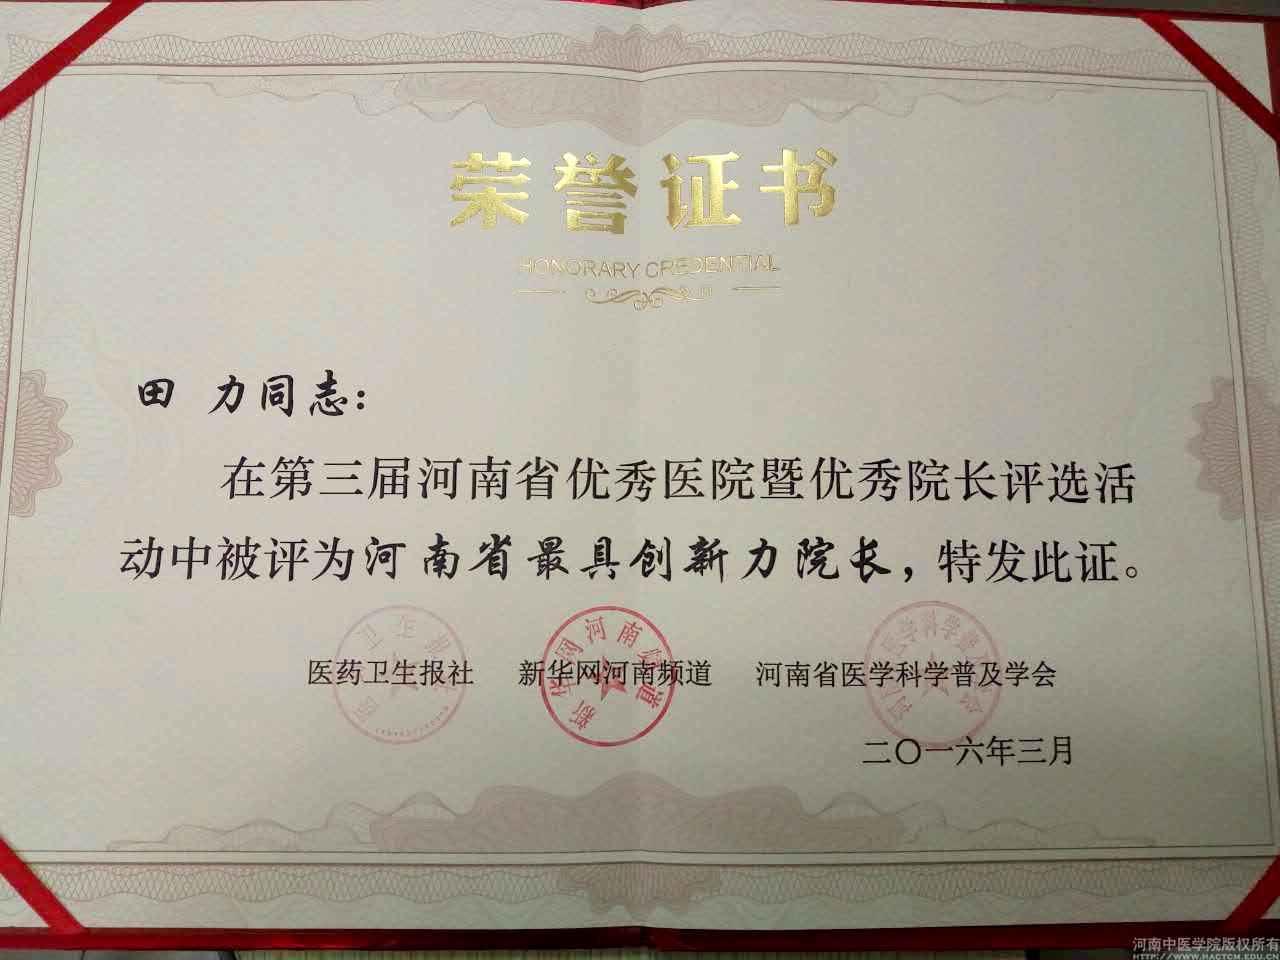 荣誉证书
HONORARY CREDENTIAL
田 力同志：
在第三届河南省优秀医院暨优秀院长评选活
动中被评为河南省最具创新力院长，特发此证。
医药卫生报社 新华网河南频道 河南省医学科学普及学会
新华网河南频道
二〇一六年三月
河南中医学院版权所有
HTTP://WWW.HACTCM.EDU.CN